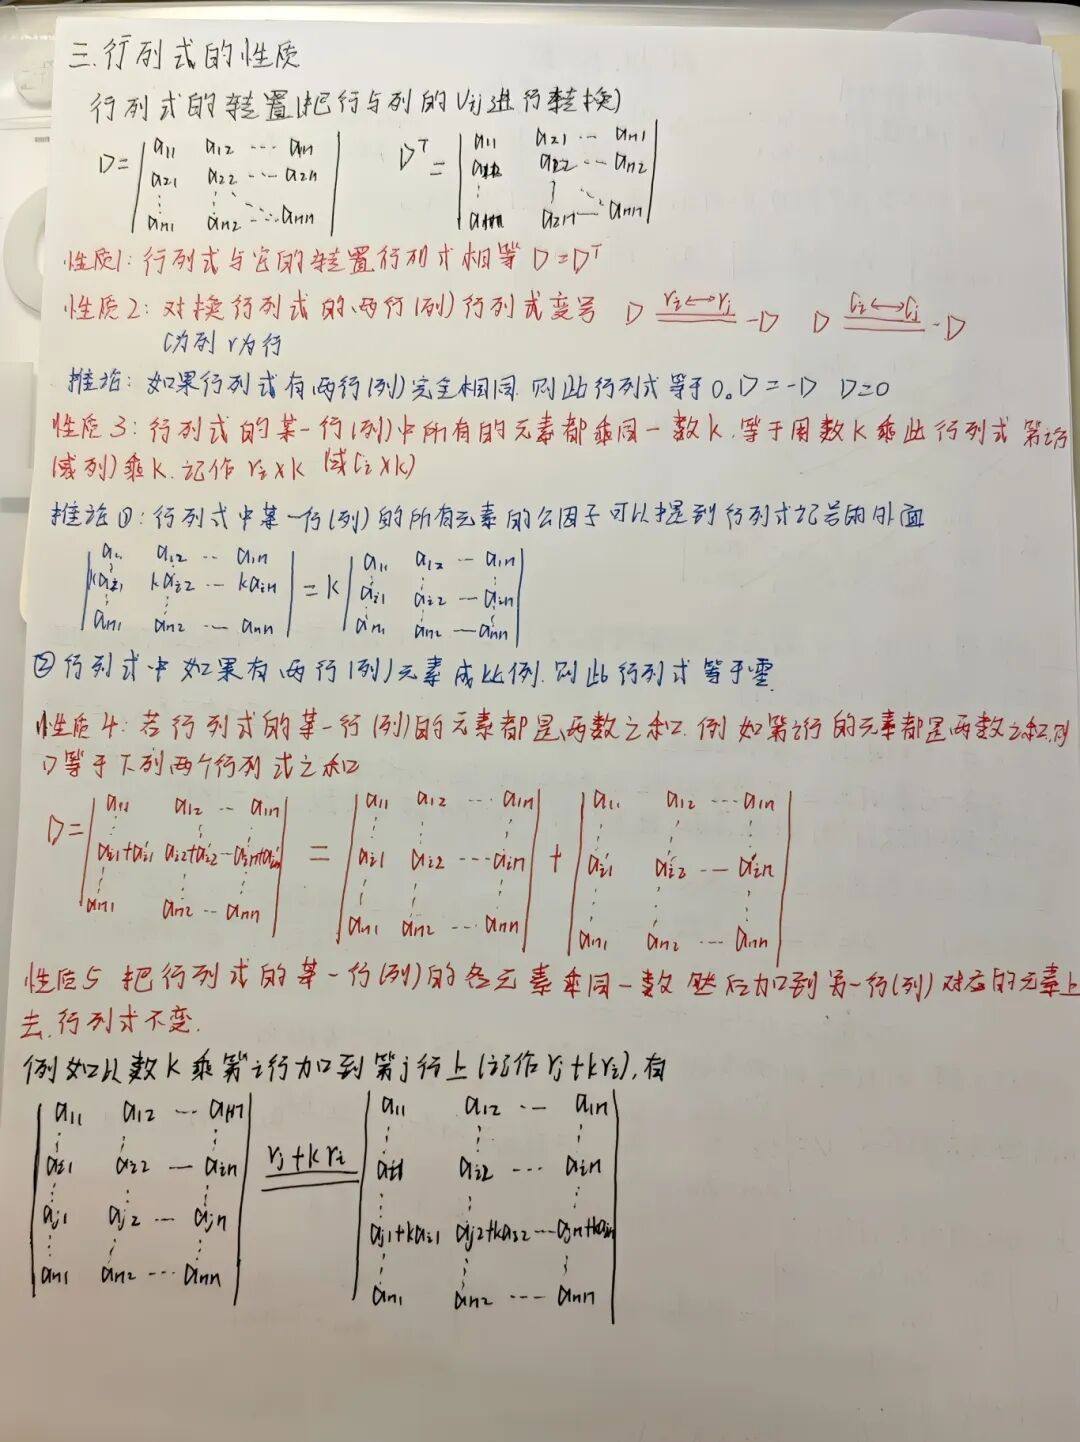 三.行列式的性质
行列式的转置(把行与列的Vij进行转换)
D= | a11 a12 ··· a1n | DT = | a11 a21 ··· an1 |
| a21 a22 ··· a2n | | a12 a22 ··· an2 |
| ⋮ ⋮ ⋱ | | ⋮ ⋮ ⋱ |
| an1 an2 ··· ann | | a1n a2n ··· ann |
性质1: 行列式与它的转置行列式相等 D=DT
性质2: 对换行列式的两行(列)行列式变号 D ri↔rj -D D Ci↔Cj -D
C为列 r为行
推论: 如果行列式有两行(列)完全相同.则此行列式等于0。D=-D D=0
性质3: 行列式的某一行(列)中所有的元素都乘同一数k.等于用数k乘此行列式 第i行
(或列)乘k.记作 ri×k (或Ci×k)
推论①: 行列式中某一行(列)的所有元素的公因子可以提到行列式记号的外面
| a11 a12 ··· a1n | | a11 a12 ··· a1n |
| kai1 kai2 ··· kain | =k | ai1 ai2 ··· ain |
| an1 an2 ··· ann | | an1 an2 ··· ann |
②行列式中如果有两行(列)元素成比例.则此行列式等于零
性质4: 若行列式的某一行(列)的元素都是两数之和.例如第i行的元素都是两数之和.则
D等于下列两个行列式之和
| a11 a12 ··· a1n | | a11 a12 ··· a1n | | a11 a12 ··· a1n |
D= | ai1+a'i1 ai2+a'i2 ··· ain+a'in | = | ai1 ai2 ··· ain | + | a'i1 a'i2 ··· a'in |
| an1 an2 ··· ann | | an1 an2 ··· ann | | an1 an2 ··· ann |
性质5 把行列式的某一行(列)的各元素乘同一数 然后加到另一行(列)对应的元素上
去.行列式不变.
例如以数k乘第i行加到第j行上(记作rj+kri),有
| a11 a12 ··· a1n | | a11 a12 ··· a1n |
| ai1 ai2 ··· ain | rj+kri | ai1 ai2 ··· ain |
| aj1 aj2 ··· ajn | | aj1+kai1 aj2+kai2 ··· ajn+kain |
| an1 an2 ··· ann | | an1 an2 ··· ann |